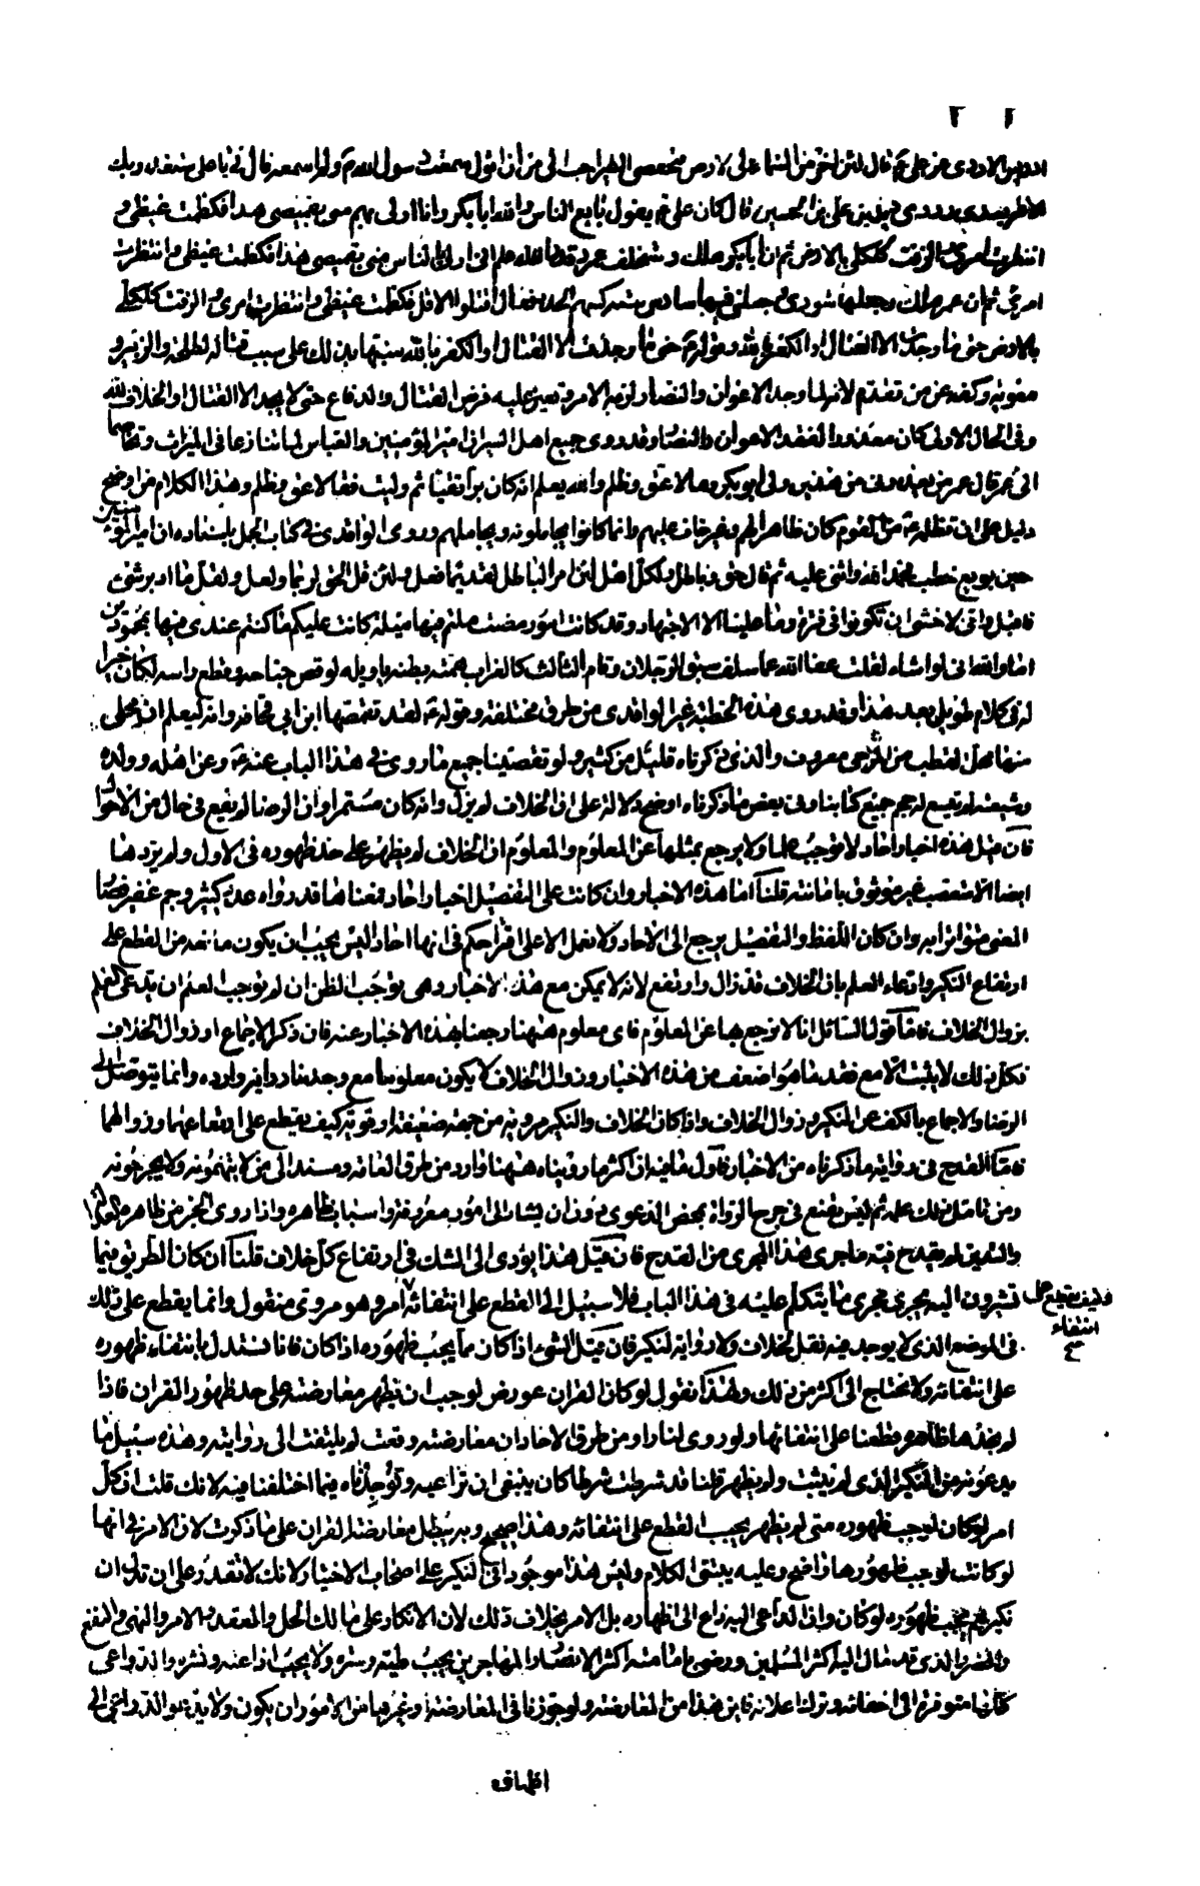 ادريس الاودى عن على ع قال لئن اخر من السماء على الارض فتخطفنى الطير احب الى من ان اقول سمعت رسول الله ص ولم اسمعه قال لى يا على ستغدر بك
الامة بعدى وروى زيد بن على بن الحسين قال كان على ع يقول بايع الناس والله ابا بكر وانا اولى بهم منى بقميصى هذا فكظمت غيظى و
انتظرت امر ربى والزقت كلكلى بالارض ثم ان ابا بكر هلك و استخلف عمر وقد والله علم انى اولى الناس منى بقميصى هذا فكظمت غيظى وانتظرت
امر ربى ثم ان عمر هلك وجعلها شورى وجعلنى فيها سادس ستة كسهم الجدة فقال اقتلوا الاقل فكظمت غيظى وانتظرت امر ربى والزقت كلكلى
بالارض حتى ما وجدت الا القتال او الكفر بالله وقوله ع حتى ما وجدت الا القتال او الكفر بالله منبها بذلك على سبب قتاله لطلحة والزبير و
معوية وكفه عن من تقدم لانه لما وجد الاعوان والنصار لزمه الامر وتعين عليه فرض القتال والدفاع حتى لا يجد الا القتال او الخلاف لله
وفى الحال الاولى كان معذورا لفقد الاعوان والنصار وقد روى جميع اهل السير ان امير المؤمنين والعباس لما تنازعا فى الميراث وتخاصما
الى عمر قال عمر من يعذرنى من هذين ولى ابو بكر فقالا عق وظلم والله يعلم انه كان برا تقيا ثم وليت فقالا عق وظلم وهذا الكلام من اوضح
دليل على ان تظلمه ع من القوم كان ظاهرا لهم وغير خاف عليهم وانما كانوا يجاملونه ويجاملهم وروى الواقدى فى كتاب الجمل باسناده ان امير المؤمنين ع
حين بويع خطب فحمد الله واثنى عليه ثم قال حق وباطل ولكل اهل لئن امر الباطل لقديما فعل ولئن قل الحق لربما ولعل ولقل ما ادبر شئ
فاقبل وانى لاخشى ان تكونوا فى فترة وما علينا الا الاجتهاد وقد كانت امور مضت ملتم فيها ميلة كانت عليكم ما كنتم عندى فيها بمحمودين
اما والله انى لو اشاء لقلت عفا الله عما سلف سبق الرجلان وقام الثالث كالغراب همته بطنه يا ويله لو قص جناحه وقطع راسه لكان خيرا
له فى كلام طويل بعد هذا وقد روى هذه الخطبة غير الواقدى من طرق مختلفة وقوله ع لقد تقمصها ابن ابى قحافة وانه ليعلم ان محلى
منها محل القطب من الرحى معروف والذى ذكرناه قليل من كثير ولو تقصينا جميع ما روى فى هذا الباب عنه ع وعن اهله وولده
وشيعته لم يتسع لجمعه جميع كتابنا وفى بعض ما ذكرناه اوضح دلالة على ان الخلاف لم يزل وانه كان مستمرا وان الرضا لم يقع فى حال من الاحوال
فان قيل هذه اخبار احاد لا توجب علما ولا يرجع بمثلها عن المعلوم والمعلوم ان الخلاف لم يظهر على حد ظهوره فى الاول ولم يروها
ايضا الا متعصب غير موثوق بامانته قلنا اما هذه الاخبار وان كانت على التفصيل اخبار احاد فمعناها قد رواه عدد كثير وجم غفير فصار
المعنى متواترا به وان كان اللفظ والتفصيل يرجع الى الاحاد ولا نعمل الا على اقتراحكم فى انها احاد اليس يجب ان يكون مانعة من القطع على
ارتفاع النكير وادعاء العلم بان الخلاف قد زال وارتفع لانه لا يمكن مع هذه الاخبار وهى توجب الظن ان لم توجب العلم ان يدعى العلم
بزوال الخلاف فاما قول السائل انا لا نرجع بها عن المعلوم فاى معلوم ههنا رجعنا بهذه الاخبار عنه فان ذكر الاجماع او زوال الخلاف
فكل ذلك لا يثبت الا مع فقد ما هو اضعف من هذه الاخبار وزوال الخلاف لا يكون معلوما مع وجدنا رواية واردة وانما يتوصل الى
الرضا والاجماع بالكف عن النكير وزوال الخلاف واذا كان الخلاف والنكير مرويا من جهة ضعيفة او قوية كيف يقطع على ارتفاعهما وزوالهما
فاما القدح فى رواية ما ذكرناه من الاخبار فاول ما فيه ان اكثر ما رويناه ههنا وارد من طرق العامة ومسند الى من لا يتهمونه ولا يجرحونه
ومن تامل ذلك علمه ثم ليس يقنع فى جرح الرواة بمحض الدعوى دون ان يشار الى امور معروفة واسباب ظاهرة واذا روى الخبر من ظاهره العدالة
والتدين لم يقدح فيه ما جرى هذا المجرى من القدح فان قيل هذا يؤدى الى الشك فى ارتفاع كل خلاف قلنا ان كان الطريق فيما
تشيرون اليه يجرى مجرى ما يتكلم عليه فى هذا الباب فلا سبيل الى القطع على انتفائه وكيف يقطع على انتفاء امر وهو مروى منقول وانما يقطع على ذلك
فى الموضع الذى لا يوجد فيه نقل لخلاف ولا رواية لنكير فان قيل الشئ اذا كان مما يجب ظهوره اذا كان فانا نستدل بانتفاء ظهوره
على انتفائه ولا نحتاج الى اكثر من ذلك ولهذا نقول لو كان القران عورض لوجب ان يظهر معارضته على حد ظهور القران فاذا
لم نجدها ظاهرة قطعنا على انتفائها ولو روى لنا راو من طرق الاحاد ان معارضته وقعت لم يلتفت الى روايته وهذه سبيل ما
يدعونه من النكير الذى لم يثبت ولم يظهر قلنا قد شرطت شرطا كان ينبغى ان تراعيه وتوجدناه فيما اختلفنا فيه لانك قلت ان كل
امر لو كان لوجب ظهوره متى لم يظهر يجب القطع على انتفائه وهذا صحيح وبه يبطل معارضة القران على ما ذكرت لان الامر فى انها
لو كانت لوجب ظهورها واضح وعليه يبتنى الكلام وليس هذا موجودا فى النكير على اصحاب الاختيار لانك لا تقدر على ان تدل ان
نكيرهم يجب ظهوره لو كان وان الداعى اليه داع الى اظهاره بل الامر بخلاف ذلك لان الانكار على مالك الحل والعقد والامر والنهى والنفع
والضر والذى قد مال اليه اكثر المسلمين ورضى بامامته اكثر الانصار والمهاجرين يجب طيه وستره ولا يجب اذاعته ونشره والدواعى
كلها متوفرة الى اخفائه وترك اعلانه فاين هذا من المعارضة ولو جوزنا فى المعارضة وغيرها من الامور ان يكون ولا يدعو الدواعى الى
اظهاره